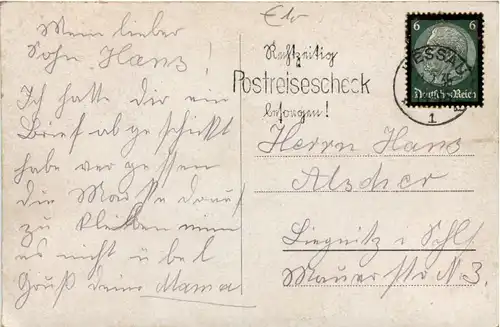 Mein lieber
Sohn Hans!
Ich hatte dir ein
Brief abgeschickt
habe vergessen
die Marke drauf
zu kleiben nimm
es nicht übel
Gruß deine Mama
Rechtzeitig
Postreisescheck
besorgen!
6 6
DESSAU
Deutsches Reich
1
Herrn Hans
Alscher
Liegnitz i Schls
Mauerstr N 3.